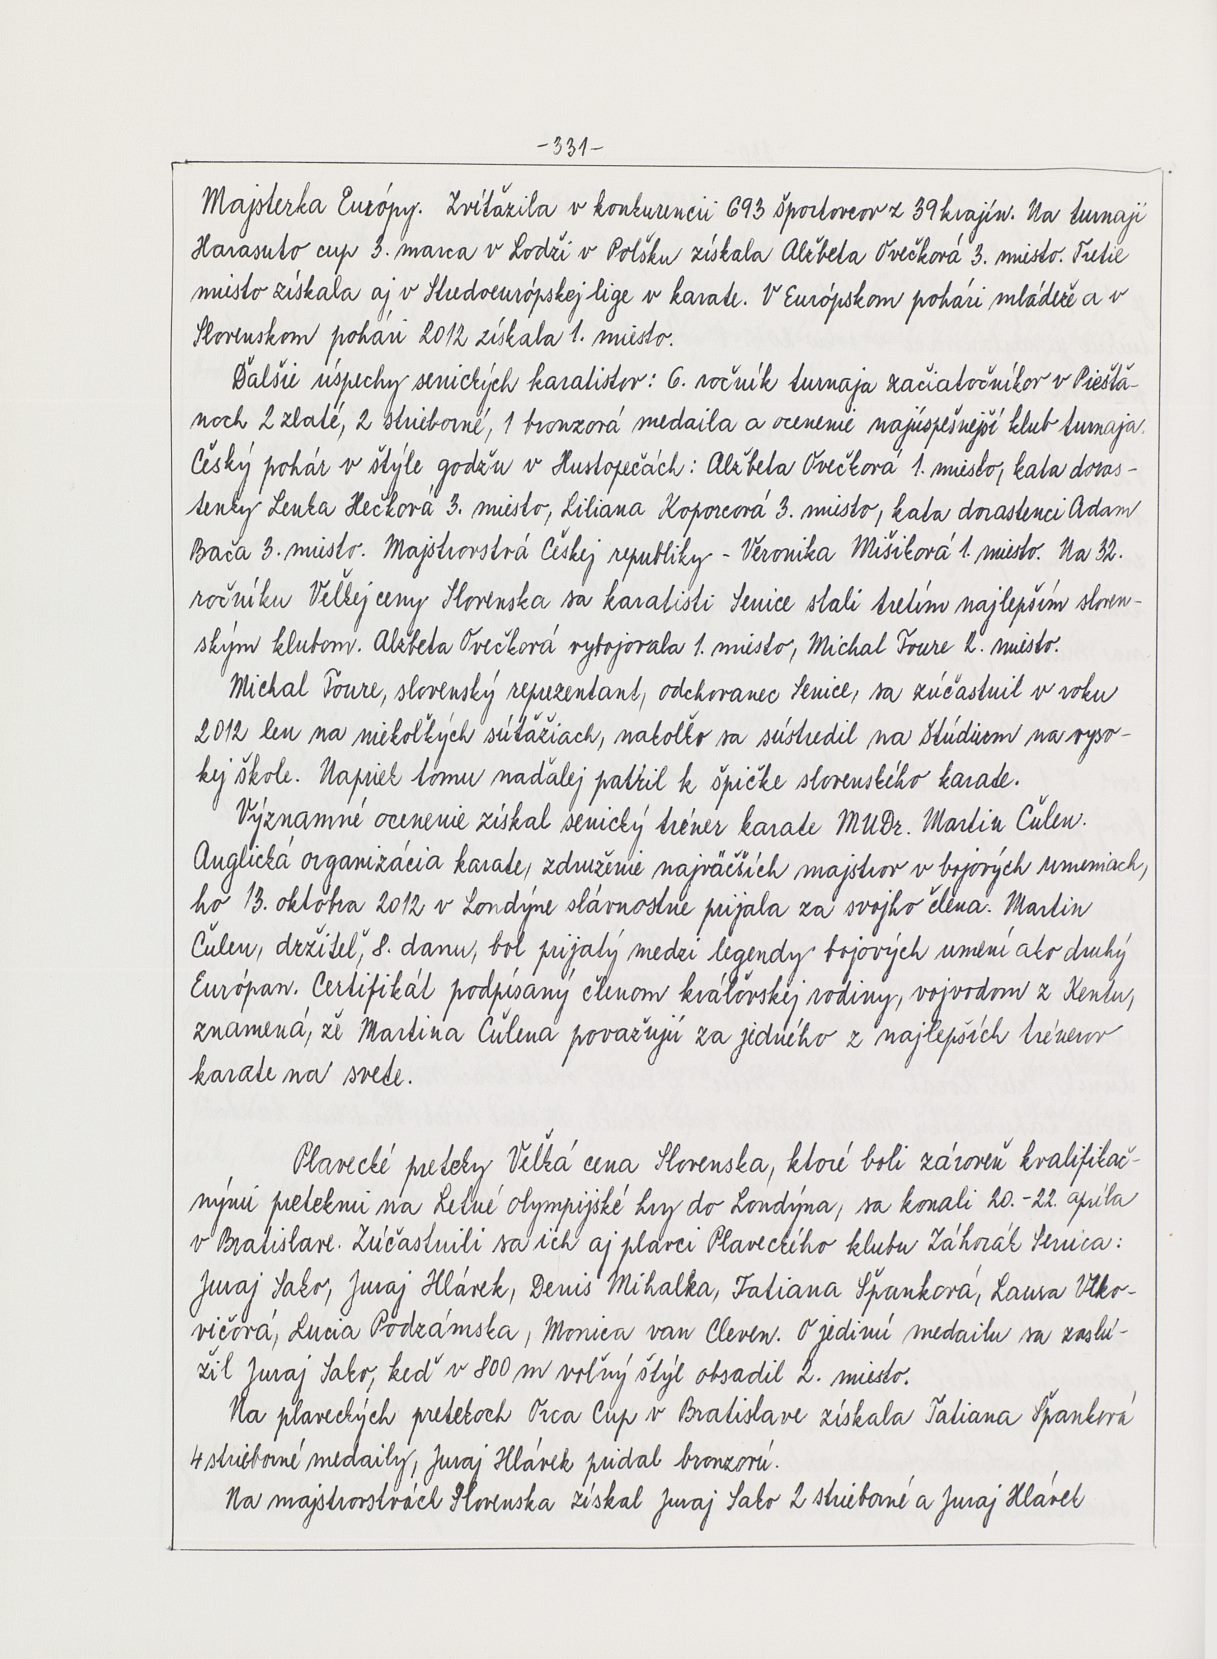 -331-
Majsterka Európy. Zvíťazila v konkurencii 693 športovcov z 39 krajín. Na turnaji
Harasuto cup 3. marca v Lodži v Poľsku získala Alžbeta Ovečková 3. miesto. Tretie
miesto získala aj v Stredoeurópskej lige v karate. V Európskom pohári mládeže a v
Slovenskom pohári 2012 získala 1. miesto.
Ďalšie úspechy senických karatistov: 6. ročník turnaja začiatočníkov v Piešťa-
noch 2 zlaté, 2 strieborné, 1 bronzová medaila a ocenenie najúspešnejší klub turnaja.
Český pohár v štýle godžu v Hustopečách: Alžbeta Ovečková 1. miesto, kata doras-
tenky Lenka Hečková 3. miesto, Liliana Koporcová 3. miesto, kata dorastenci Adam
Bača 3. miesto. Majstrovstvá Českej republiky - Veronika Mišíková 1. miesto. Na 32.
ročníku Veľkej ceny Slovenska sa karatisti Senice stali tretím najlepším sloven-
ským klubom. Alžbeta Ovečková vybojovala 1. miesto, Michal Toure 2. miesto.
Michal Toure, slovenský reprezentant, odchovanec Senice, sa zúčastnil v roku
2012 len na niekoľkých súťažiach, nakoľko sa sústredil na štúdium na vyso-
kej škole. Napriek tomu naďalej patril k špičke slovenského karate.
Významné ocenenie získal senický tréner karate MUDr. Martin Čulen.
Anglická organizácia karate, združenie najväčších majstrov v bojových umeniach,
ho 13. októbra 2012 v Londýne slávnostne prijala za svojho člena. Martin
Čulen, držiteľ, 8. danu, bol prijatý medzi legendy bojových umení ako druhý
Európan. Certifikát podpísaný členom kráľovskej rodiny, vojvodom z Kentu,
znamená, že Martina Čulena považujú za jedného z najlepších trénerov
karate na svete.
Plavecké preteky Veľká cena Slovenska, ktoré boli zároveň kvalifikač-
nými pretekmi na Letné olympijské hry do Londýna, sa konali 20.-22. apríla
v Bratislave. Zúčastnili sa ich aj plavci Plaveckého klubu Záhorák Senica:
Juraj Sako, Juraj Hlávek, Denis Mihalka, Tatiana Španková, Laura Vlko-
vičová, Lucia Podzámska, Monica van Cleven. O jedinú medailu sa zaslú-
žil Juraj Sako, keď v 800 m voľný štýl obsadil 2. miesto.
Na plaveckých pretekoch Orca Cup v Bratislave získala Tatiana Španková
4 strieborné medaily, Juraj Hlávek pridal bronzovú.
Na majstrovstvách Slovenska získal Juraj Sako 2 strieborné a Juraj Hlávek